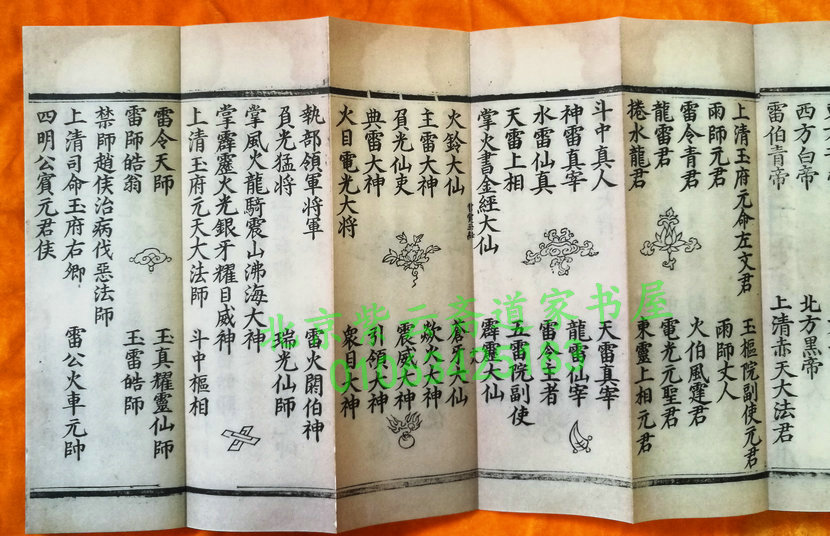 西方白帝
北方黒帝
雷伯青帝
上清赤天大法君
上清玉府元命左文君
玉樞院副使元君
雨師元君
雨師丈人
雷令青君
火伯風霆君
龍雷君
電光元聖君
捲水龍君
東靈上相元君
斗中真人
天雷真宰
神雷真宰
龍雷仙宰
水雷仙真
雷令主者
天雷上相
五雷院副使
掌火書金經大仙
霹靂大仙
火鈴大仙
蒼牙大仙
主雷大神
歘火大神
負光仙吏
震威大神
典雷大神
引領大神
火目電光大将
衆目大神
執部領軍将軍
雷火閼伯神
負光猛将
瑞光仙師
掌風火龍騎震山沸海大神
掌霹靂火光銀牙耀目威神
上清玉府元天大法師
斗中樞相
雷令天師
玉真耀靈仙師
雷師皓翁
玉雷皓師
禁師趙侯治病伐惡法師
上清司命玉府右卿
雷公火車元帥
四明公賓元君侯
北京紫云斋道家书屋
01063425183